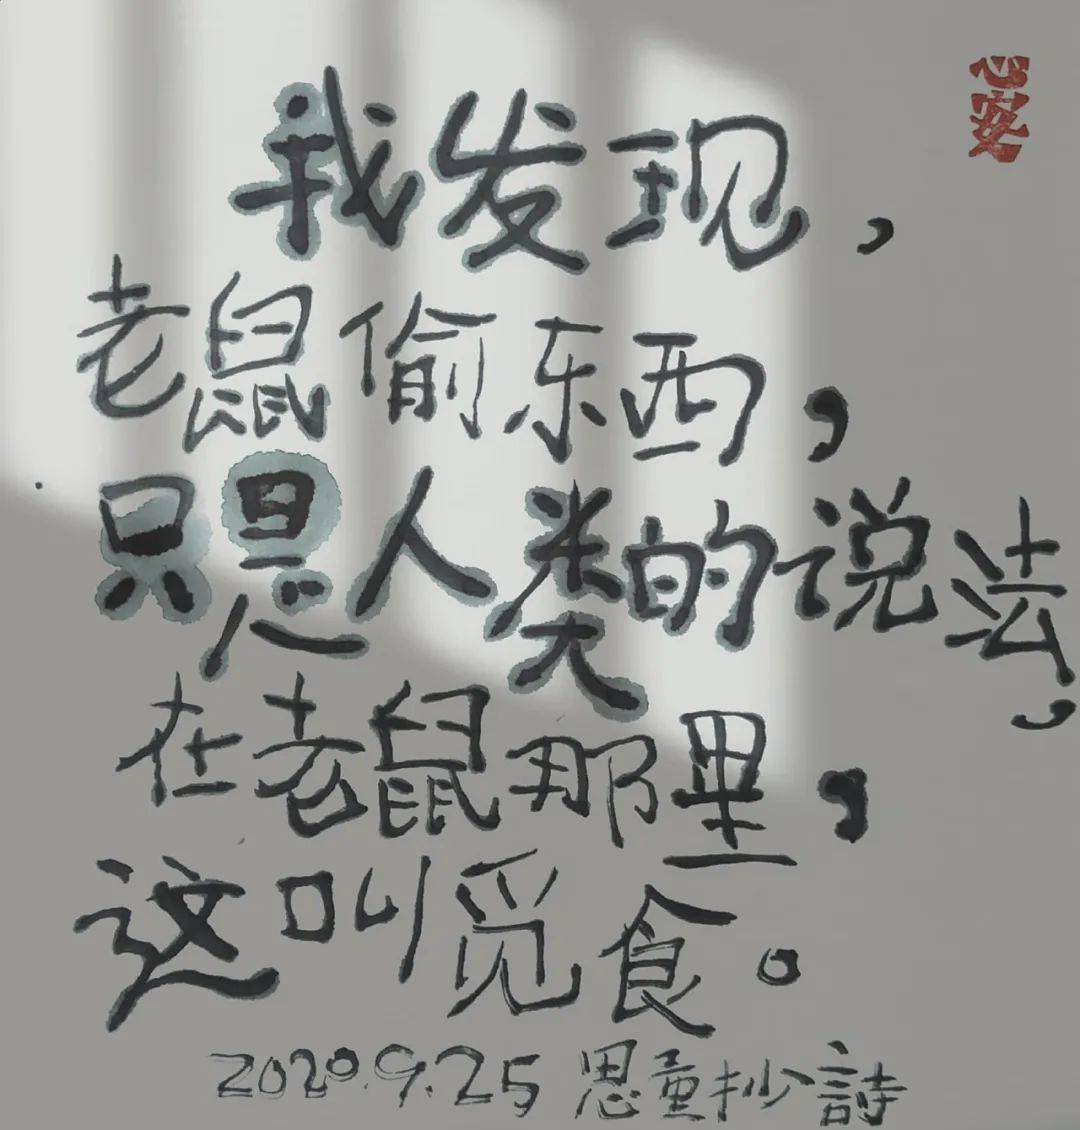 心安
我发现，
老鼠偷东西，
只是人类的说法，
在老鼠那里，
这叫觅食。
2020.9.25 思童抄詩